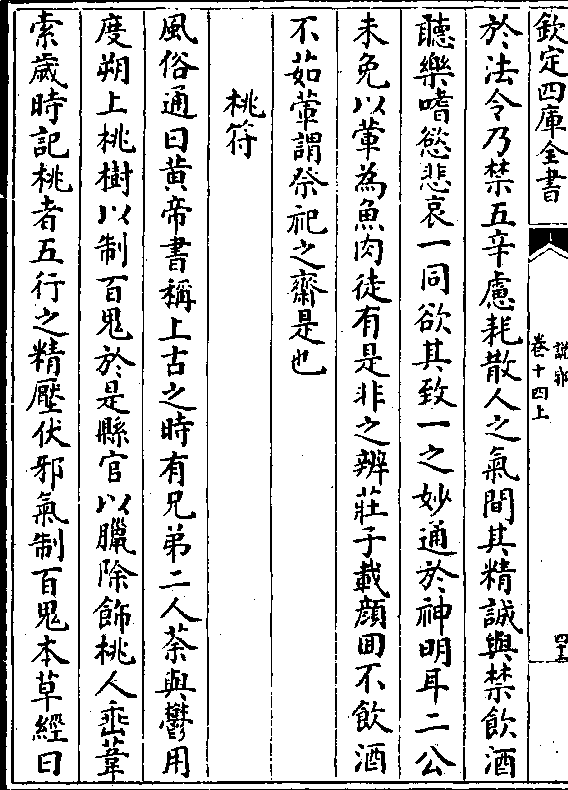 欽定四庫全書
說郛
卷十四上
四十三
於法令乃禁五辛慮耗散人之氣間其精誠與禁飲酒
聽樂嗜慾悲哀一同欲其致一之妙通於神明耳二公
未免以葷為魚肉徒有是非之辨莊子載顔回不飲酒
不茹葷謂祭祀之齋是也
桃符
風俗通曰黄帝書稱上古之時有兄弟二人荼與鬱用
度朔上桃樹以制百鬼於是縣官以臘除飾桃人垂葦
索歲時記桃者五行之精壓伏邪氣制百鬼本草經曰